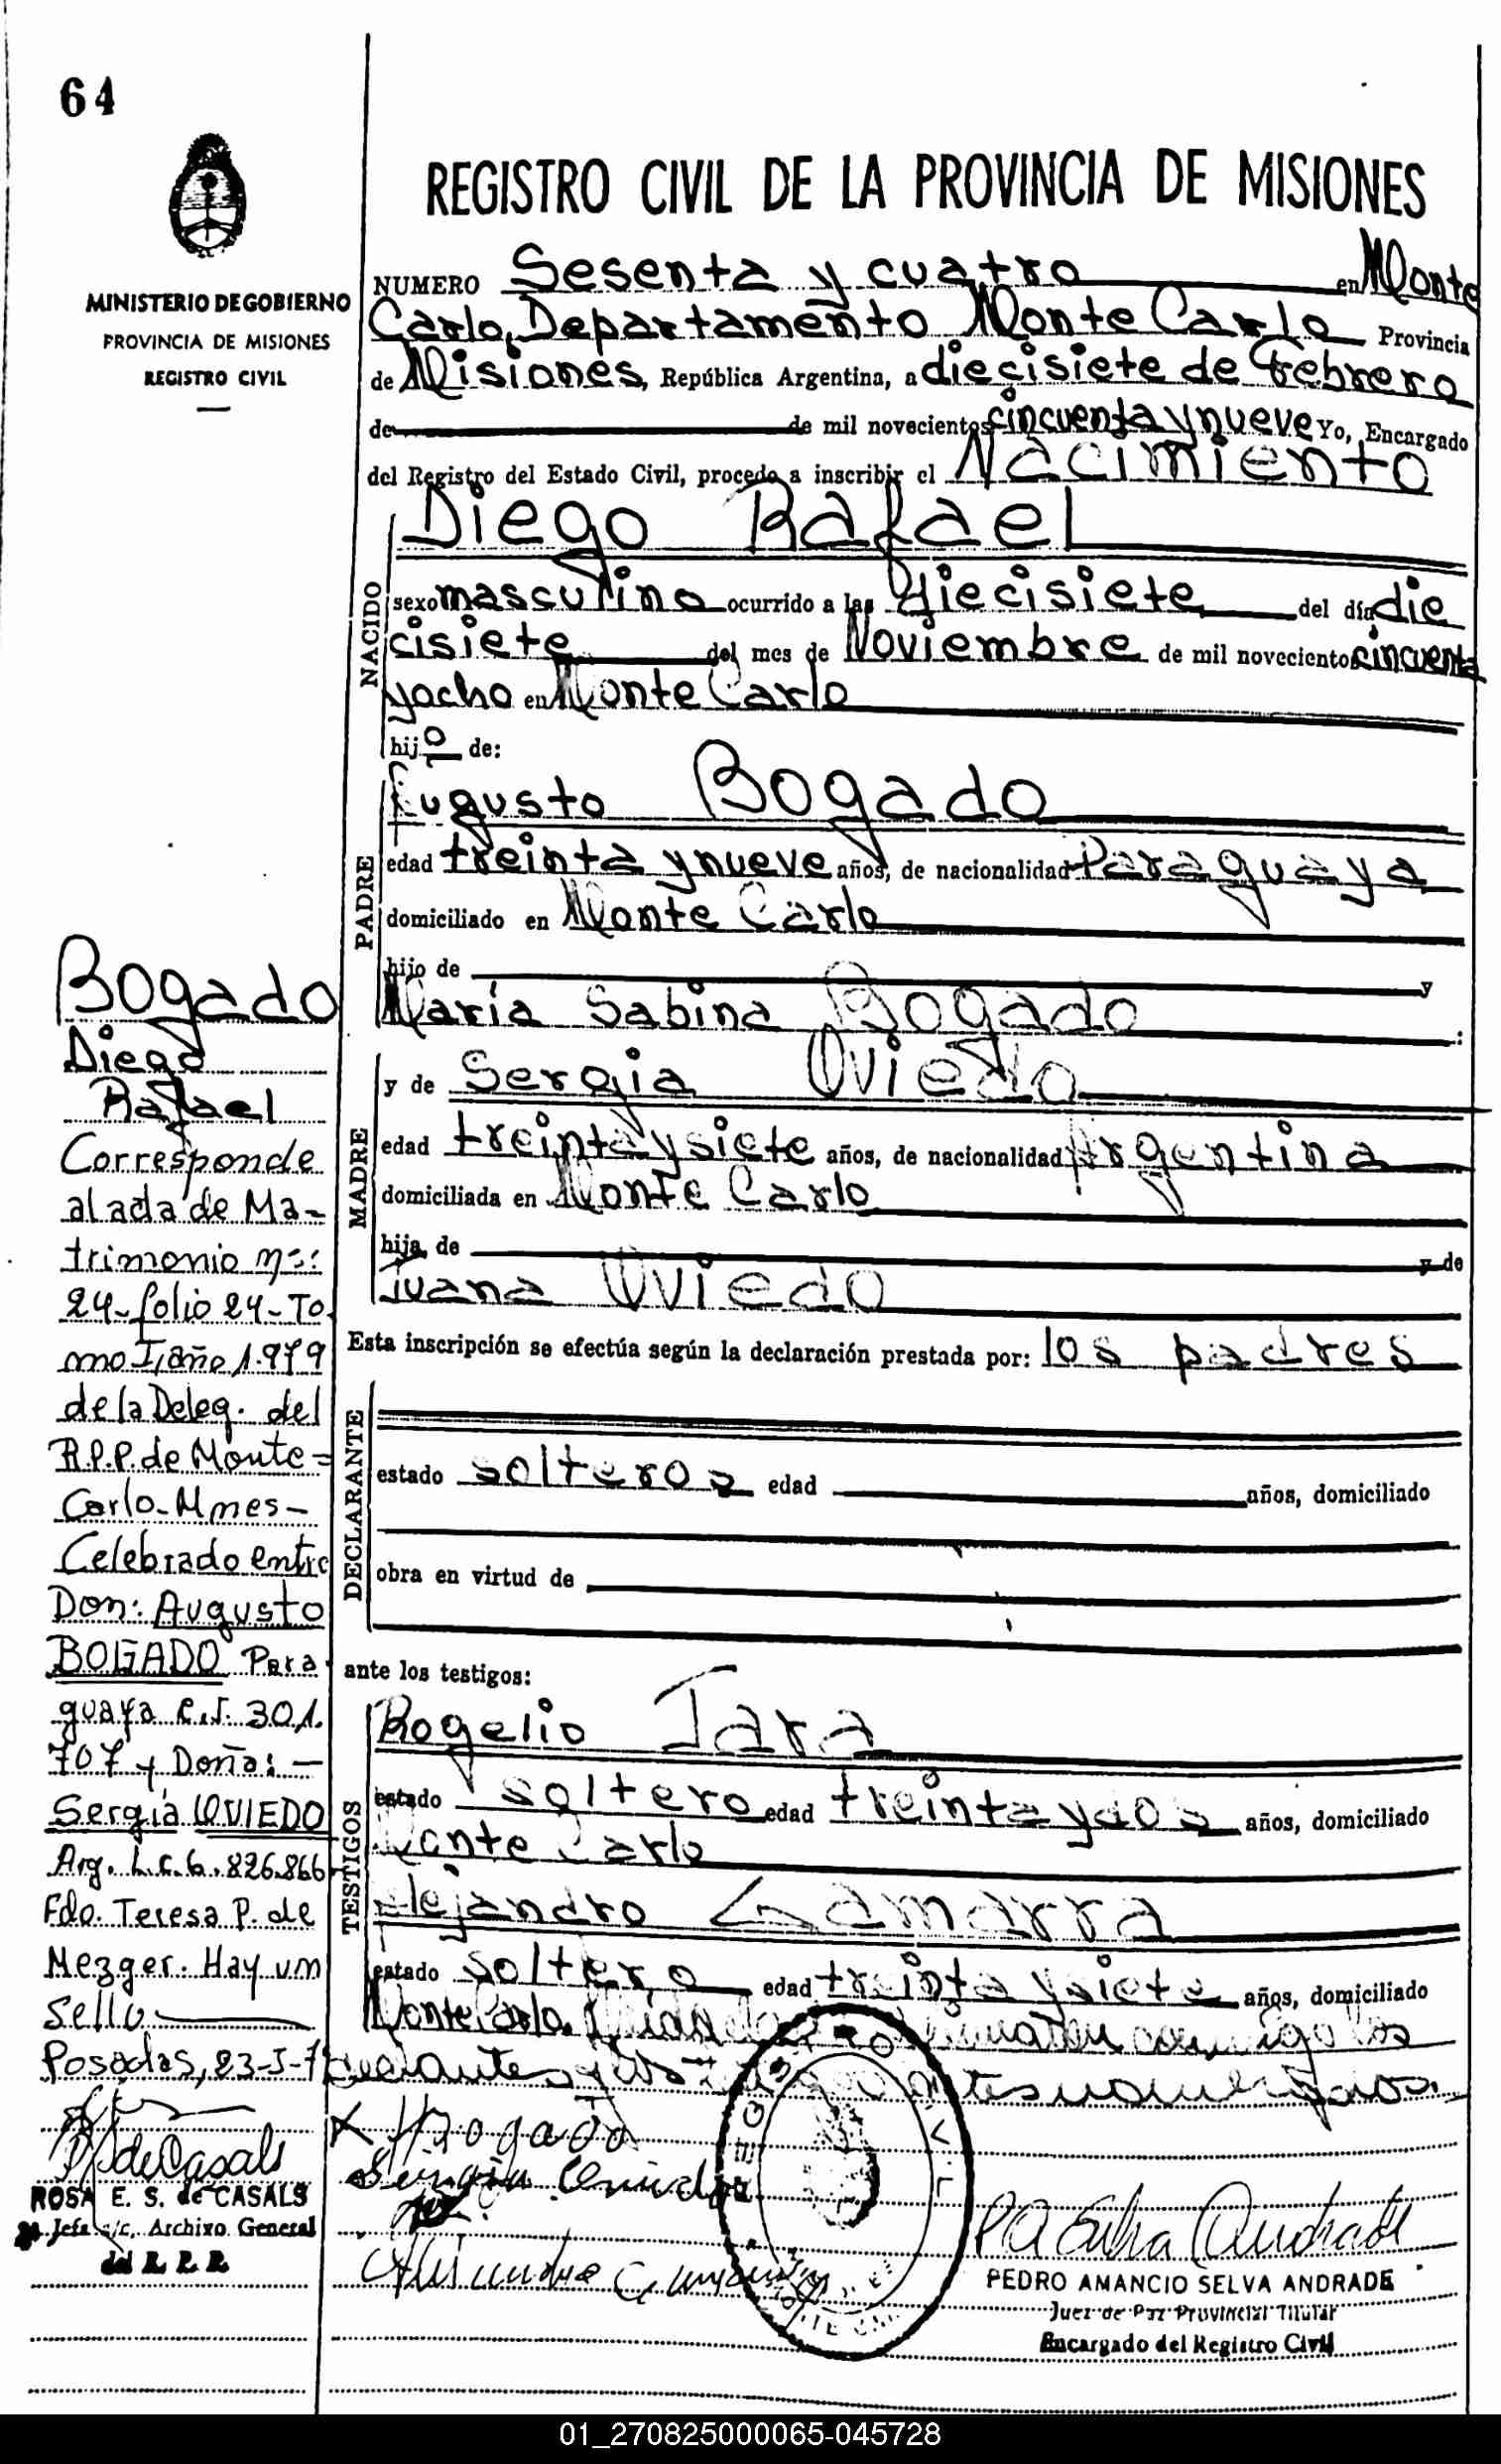 64
MINISTERIO DE GOBIERNO
PROVINCIA DE MISIONES
REGISTRO CIVIL
REGISTRO CIVIL DE LA PROVINCIA DE MISIONES
NUMERO Sesenta y cuatro en Monte
Carlo, Departamento Monte Carlo Provincia
de Misiones, República Argentina, a diecisiete de Febrero
de de mil novecientos cincuenta y nueve Yo, Encargado
del Registro del Estado Civil, procedo a inscribir el Nacimiento
NACIDO
Diego Rafael
sexo masculino ocurrido a las diecisiete del día die
cisiete del mes de Noviembre de mil novecientos cincuenta
y ocho en Monte Carlo
hijo de:
PADRE
Augusto Bogado
edad treinta y nueve años, de nacionalidad Paraguaya
domiciliado en Monte Carlo
hijo de y
María Sabina Bogado
MADRE
y de Sergia Oviedo
edad treinta y siete años, de nacionalidad Argentina
domiciliada en Monte Carlo
hija de y de
Juana Oviedo
Esta inscripción se efectúa según la declaración prestada por: los padres
DECLARANTE
estado solteros edad años, domiciliado
obra en virtud de
ante los testigos:
TESTIGOS
Rogelio Jara
estado soltero edad treinta y dos años, domiciliado
Monte Carlo
Alejandro Gamarra
estado soltero edad treinta y siete años, domiciliado
Monte Carlo. conmigo los
Bogado
PEDRO AMANCIO SELVA ANDRADE
Juez de Paz Provincial Titular
Encargado del Registro Civil
Bogado
Diego
Rafael
Corresponde
al acta de Ma-
trimonio nº:
24-folio 24-To
mo I, año 1.979
de la Deleg. del
R.P.P. de Monte=
Carlo-Mnes-
Celebrado entre
Don: Augusto
BOGADO Para
guaya C.I. 301.
707 y Doña:-
Sergia OVIEDO
Arg. L.C. 6.826.866
Fdo. Teresa P. de
Mezger. Hay un
sello
Posadas, 23-5-7
ROSA E. S. de CASALS
Jefa a/c. Archivo General
del R. P. P.
01_270825000065-045728